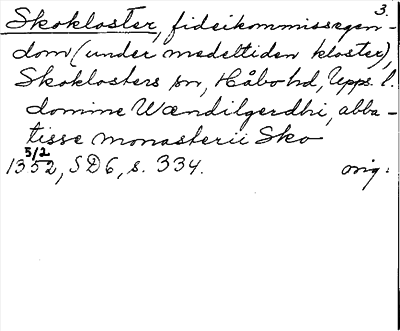 3.
Skokloster, fideikommissegen-
dom (under medeltiden kloster),
Skoklosters sn, Håbo hd, Upps. l.
domine Wændilgerdhi, abba-
tisse monasterii Sko
5/2
1352, SD6, s. 334. orig.